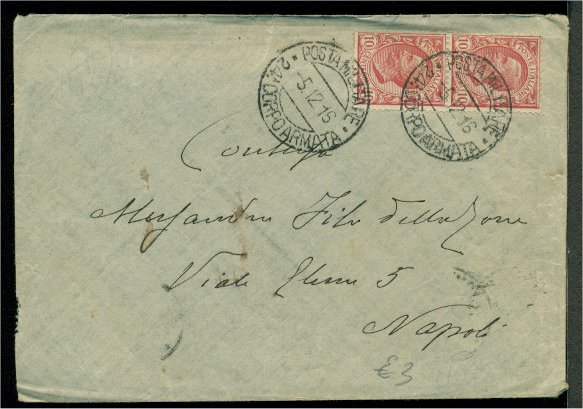 10
10
POSTA MILITARE
5.12.16
CORPO ARMATA
POSTA MILITARE
CORPO ARMATA
Contessa
Alessandra Filo della Torre
Viale Elena 5
Napoli
£3